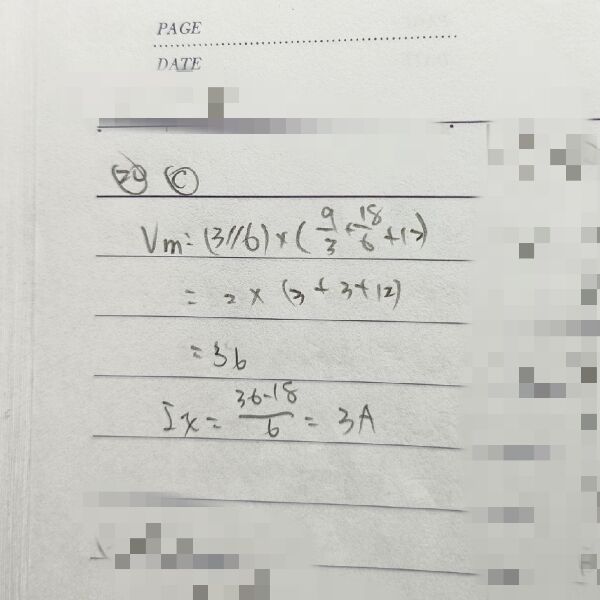 PAGE
DATE
20 C
Vm = (3//6) × ( 9/3 + 18/6 + 12)
= 2 × (3 + 3 + 12)
= 36
Ix = 36-18/6 = 3A